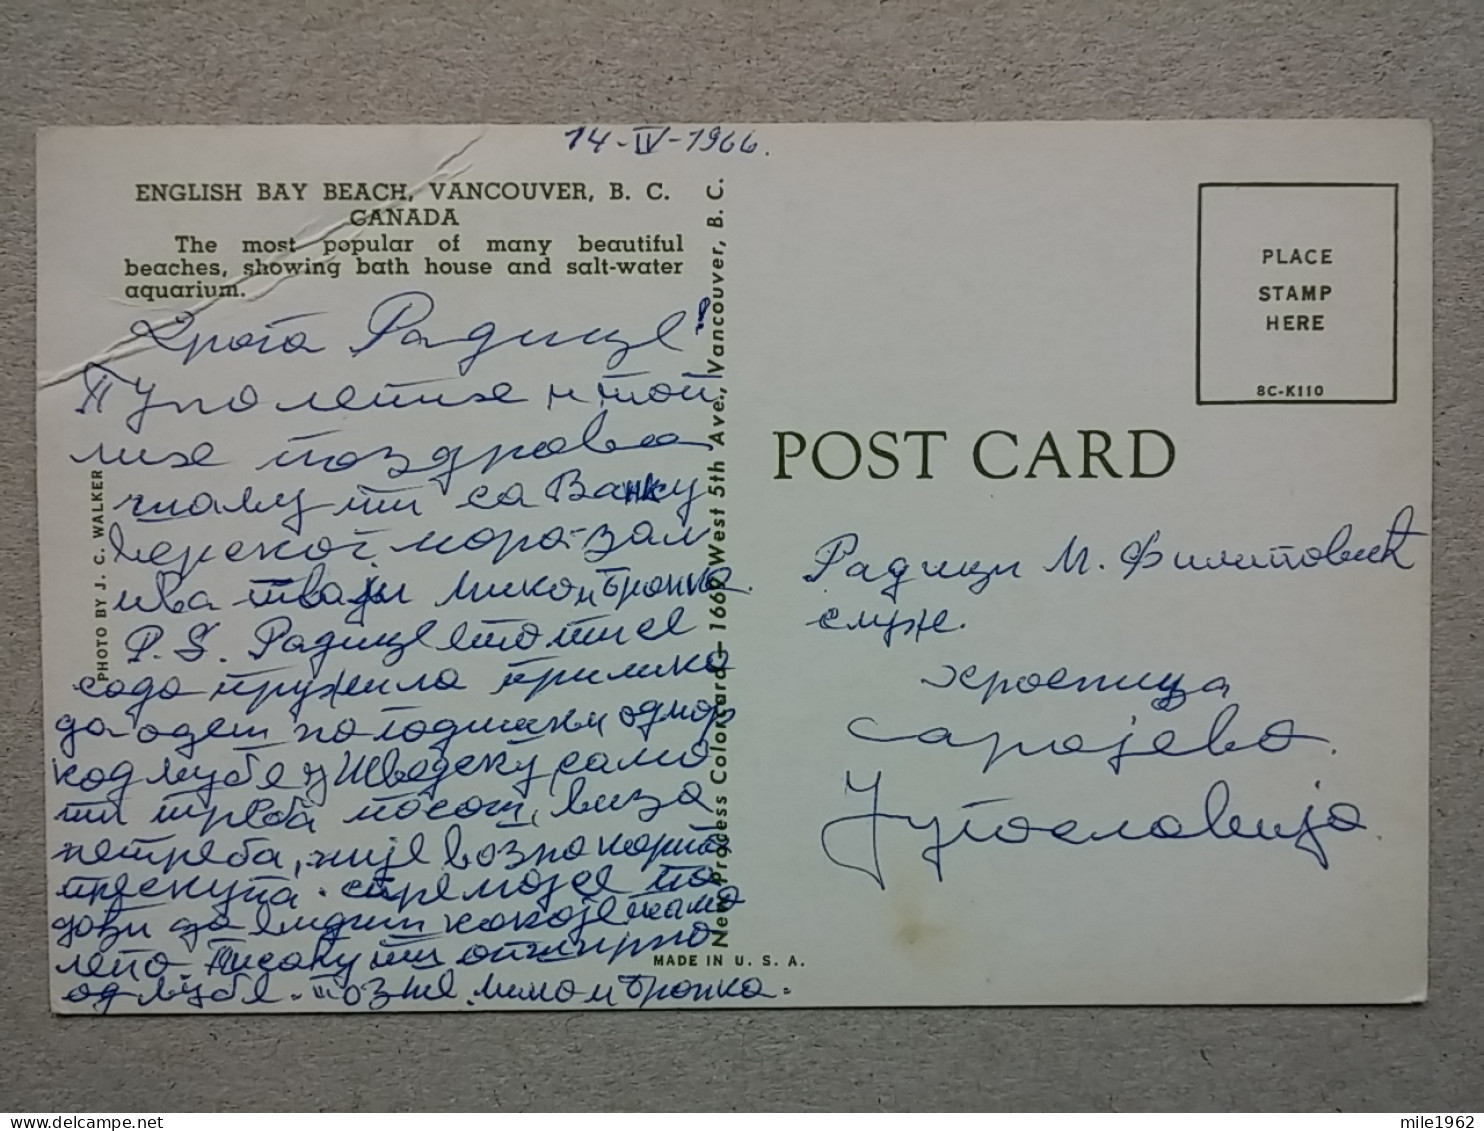 14-IV-1966.
ENGLISH BAY BEACH, VANCOUVER, B. C.
CANADA
The most popular of many beautiful
beaches, showing bath house and salt-water
aquarium.
Драга Радице
Пуно лепих и топ
лих поздрава
шаљу ти са Ванку
верског мора-зал
ива твоји Мико и Бранка.
P.S. Радице што ти се
сада пружила прилика
да одеш на годишњи одмор
код Љубе у Шведску само
ти треба пасош, виза
нетреба, није возна карта
прескупа.
дођи да видиш како је тамо
лепо. Писаћу ти опширно
од Љубе. Поз
PHOTO BY J. C. WALKER
New Process Colorcard — 1669 West 5th Ave., Vancouver, B. C.
MADE IN U. S. A.
PLACE
STAMP
HERE
8C-K110
POST CARD
Радици М. Филиповић
служ.
Храсница
Сарајево.
Југославија.
mile1962